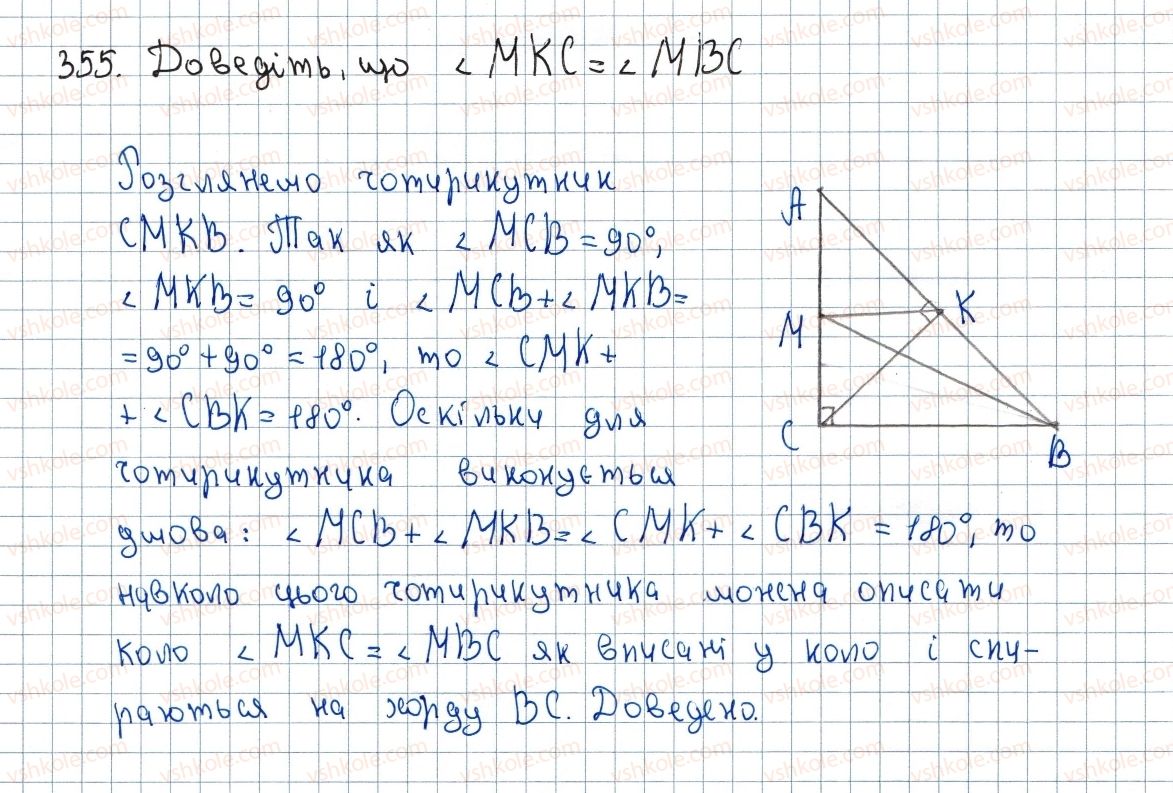 355. Доведіть, що ∠ MKC = ∠ MBC
Розглянемо чотирикутник
CMKB. Так як ∠ MCB = 90°,
∠ MKB = 90° і ∠ MCB + ∠ MKB =
= 90° + 90° = 180°, то ∠ CMK +
+ ∠ CBK = 180°. Оскільки для
чотирикутника виконується
умова: ∠ MCB + ∠ MKB = ∠ CMK + ∠ CBK = 180°, то
навколо цього чотирикутника можна описати
коло ∠ MKC = ∠ MBC як вписані у коло і спи-
раються на хорду BC. Доведено.
A
K
M
C
B
vshkole.com